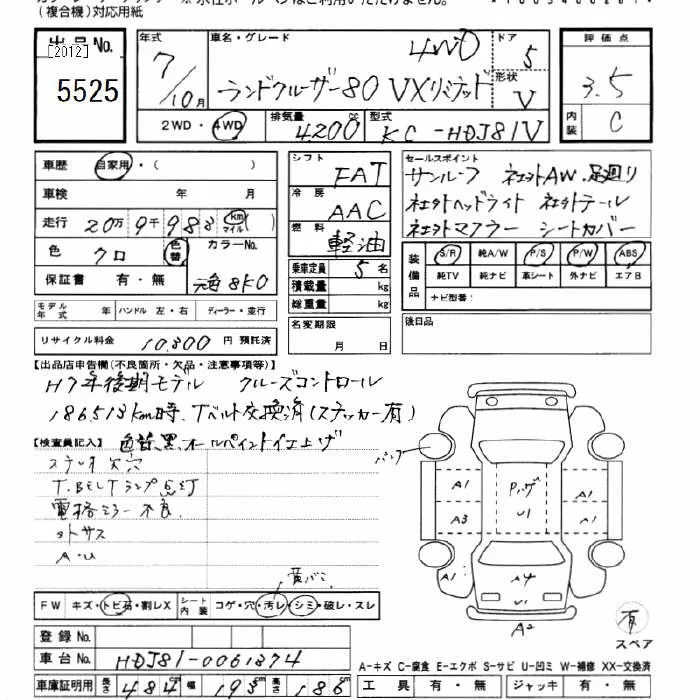 (複合機)対応用紙
出品No.
[2012]
5525
年式
7/10月
車名・グレード
4WD
ランドクルーザー80 VXリミテッド
ドア
5
形状
V
評価点
3.5
内装
C
2WD・4WD
排気量
4200
cc
型式
KC-HDJ81V
車歴
自家用・( )
車検 年 月
走行 20万9千988 km マイル
色 クロ 色替 カラーNo.
保証書 有・無
元色 8K0
モデル年式 年 ハンドル 左・右 ディーラー・並行
リサイクル料金 10,800円 預託済
シフト
FAT
冷房
AAC
燃料
軽油
乗車定員 5 名
積載量 kg
総重量 kg
名変期限
月 日
セールスポイント
サンルーフ 社外AW.足廻り
社外ヘッドライト 社外テール
社外マフラー シートカバー
装備品
S/R 純A/W P/S P/W ABS
純TV 純ナビ 革シート 外ナビ エアB
ナビ型番:
後日品
【出品店申告欄(不良箇所・欠品・注意事項等)】
H7年後期モデル クルーズコントロール
186513km時、Tベルト交換済(ステッカー有)
【検査員記入】
色替黒オールペイント仕上げ
ステレオ欠穴
T.BELTランプ点灯
電格ミラー不良
外サス
A・U
黄バミ
FW キズ・トビ石・割レX シート内装 コゲ・穴・汚レ・シミ・破レ・スレ
登録No.
車台No. HDJ81-0061374
車庫証明用 長さ 484 cm 幅 193 cm 高さ 186 cm
パンク
A1
A3
A1
U1
A1
A1
A1
A4
U1
A2
有
スペア
A-キズ C-腐食 E-エクボ S-サビ U-凹ミ W-補修 XX-交換済
工具 有・無 ジャッキ 有・無